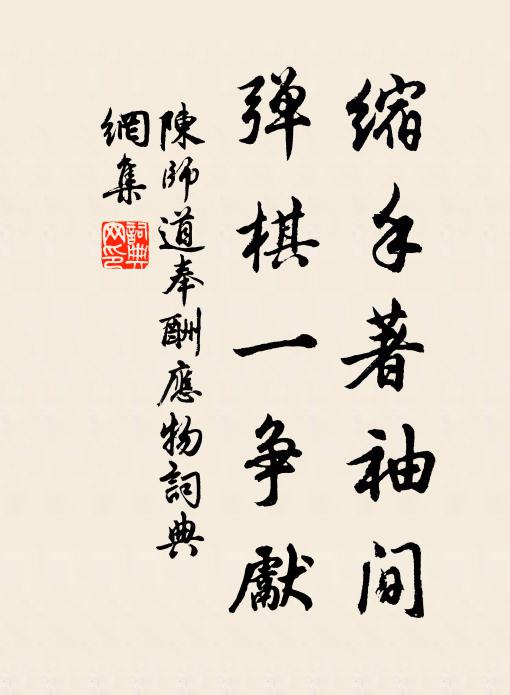 缩手著袖间
弹棋一争獻
陳師道奉酬應物詞典
網集
詞典
网印